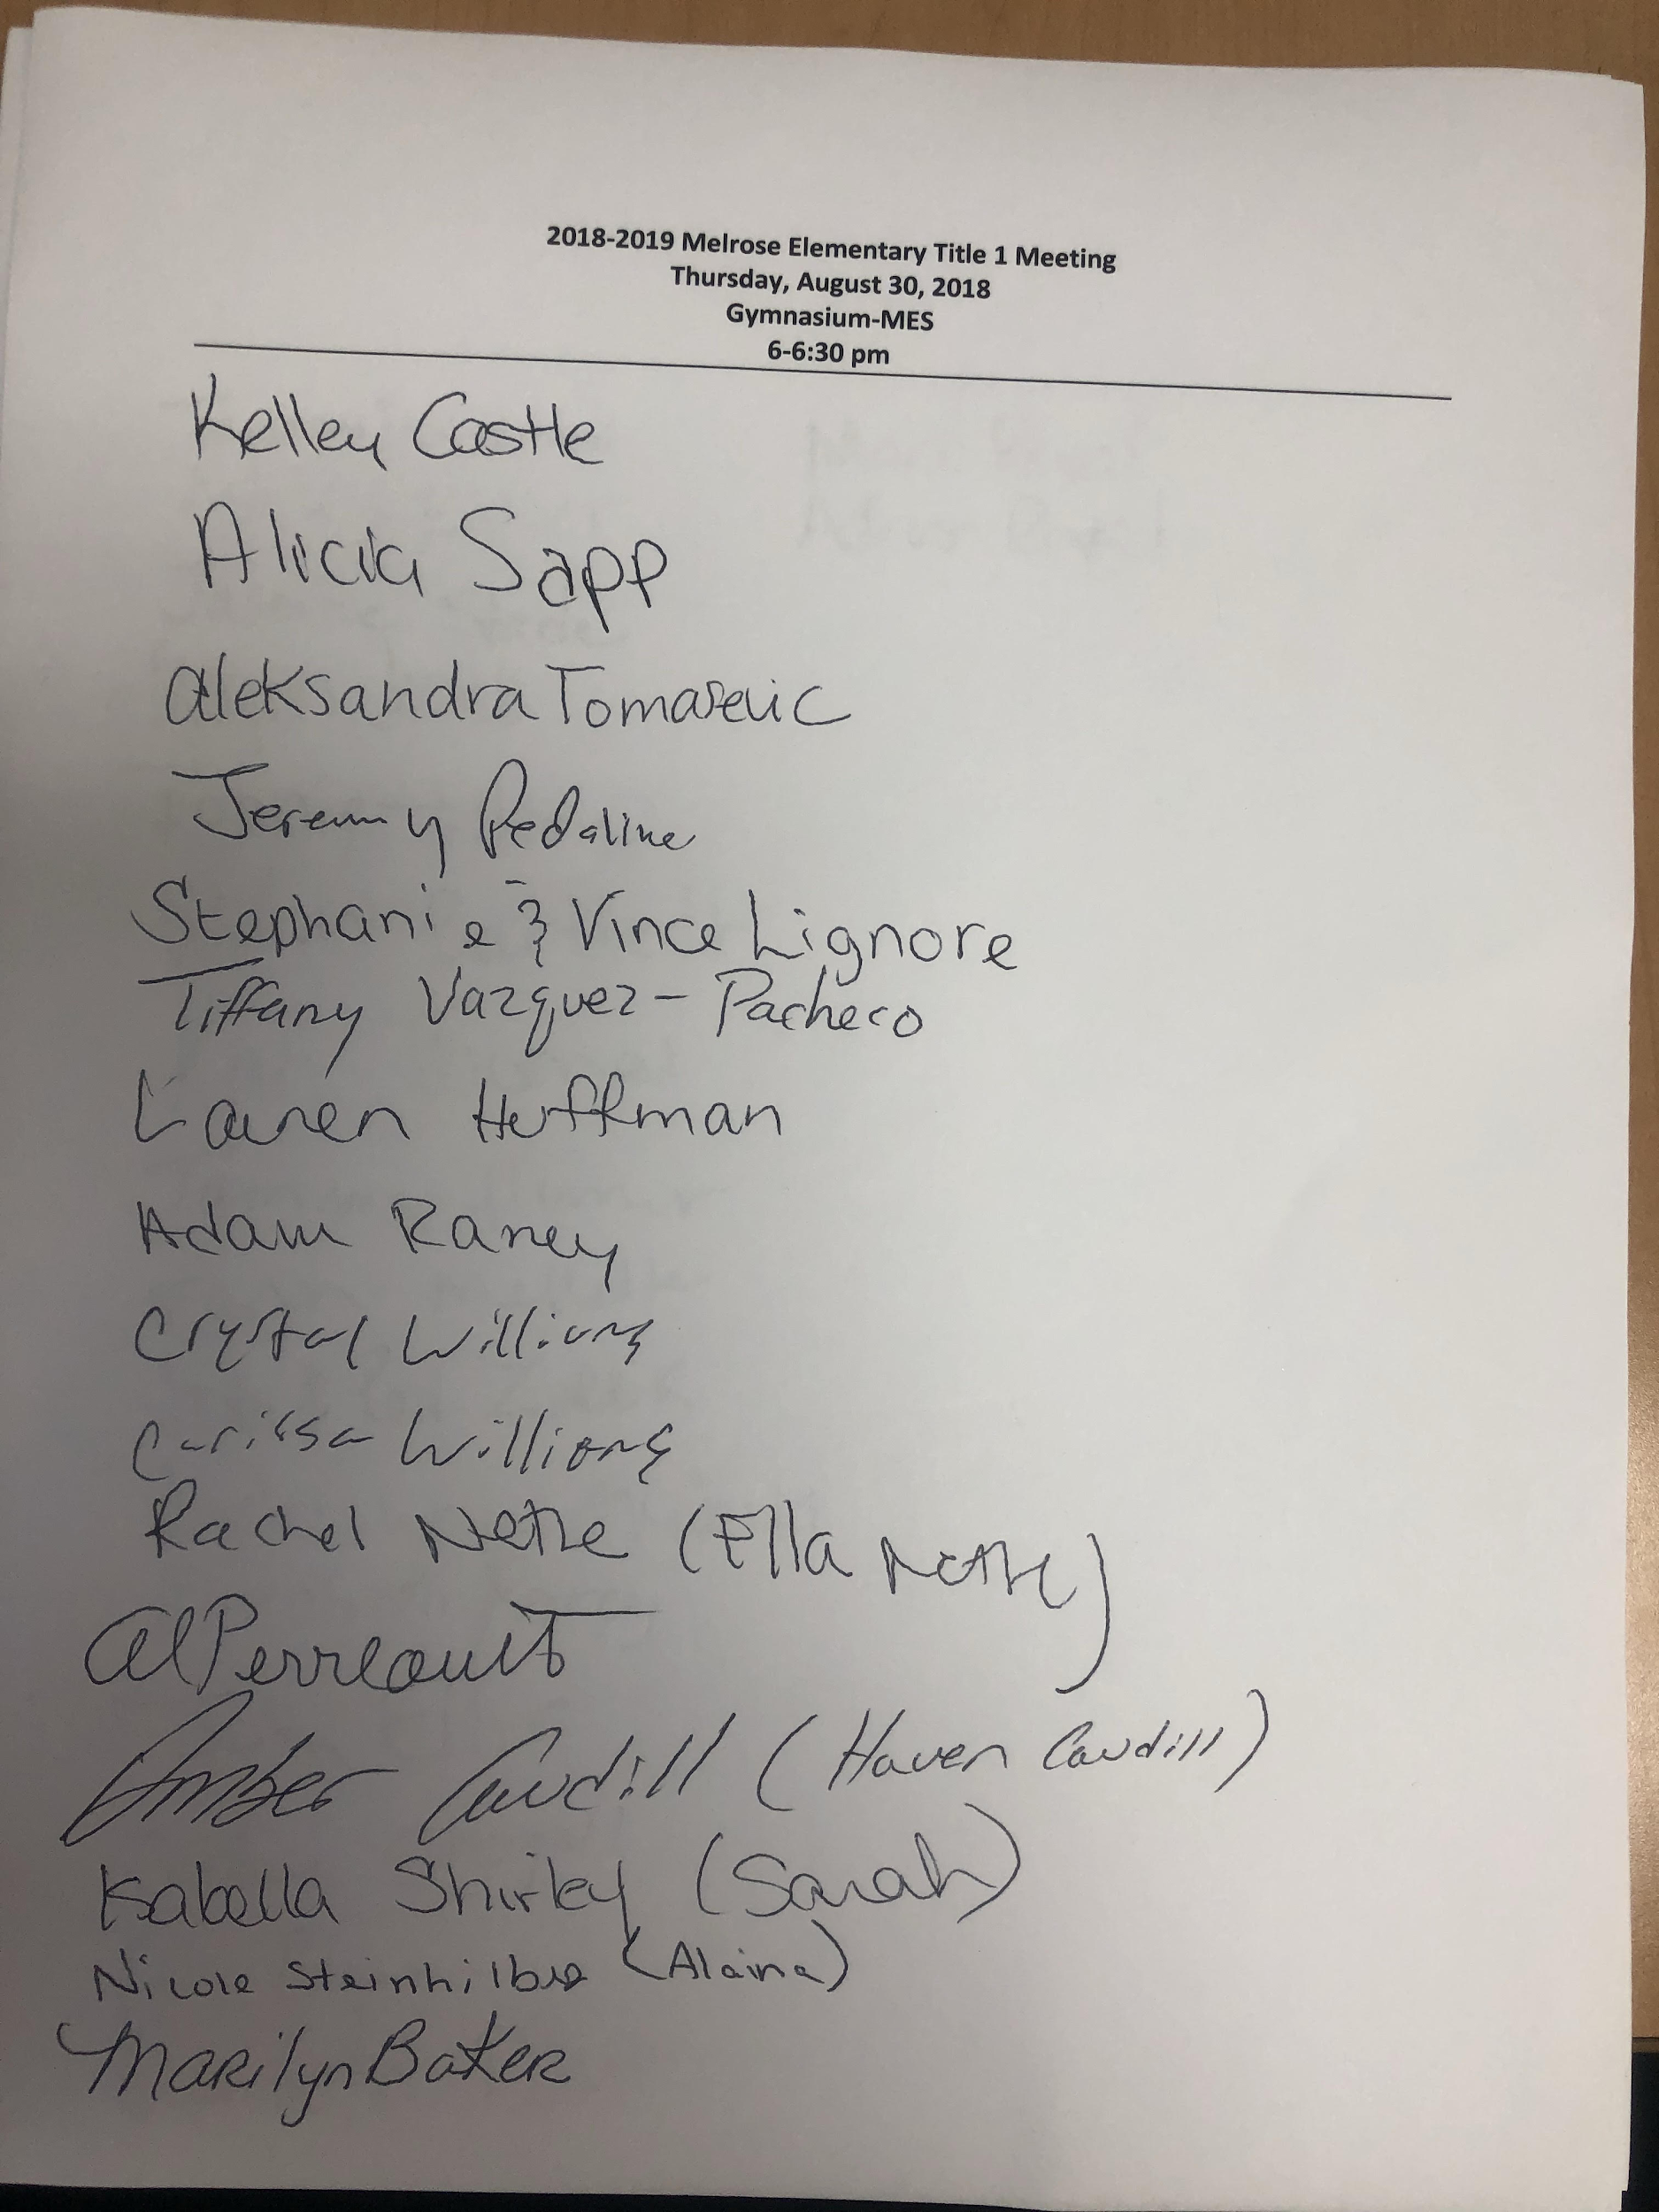 2018-2019 Melrose Elementary Title 1 Meeting
Thursday, August 30, 2018
Gymnasium-MES
6-6:30 pm
Kelley Castle
Alicia Sapp
Aleksandra Tomasevic
Jeremy Pedaline
Stephanie & Vince Lignore
Tiffany Vazquez-Pacheco
Lauren Huffman
Adam Raney
Crystal Williams
Carissa Williams
Rachel Nethe (Ella Nethe)
Al Perreault
Amber Caudill (Haven Caudill)
Isabella Shirley (Sarah)
Nicole (Alaina)
Marilyn Baker